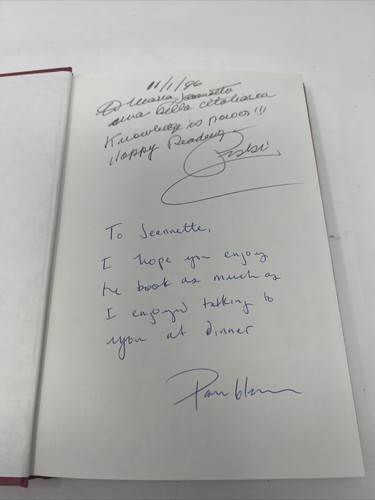 11/1/96
Maria
una bella
Knowledge is power!!!
Happy Reading
To Jeannette,
I hope you enjoy
the book as much as
I enjoyed talking to
you at dinner